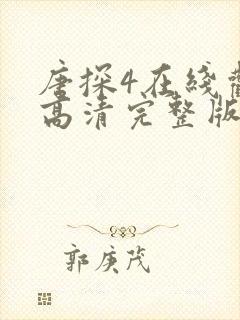 唐探4在线
高清完整版
郭庚茂